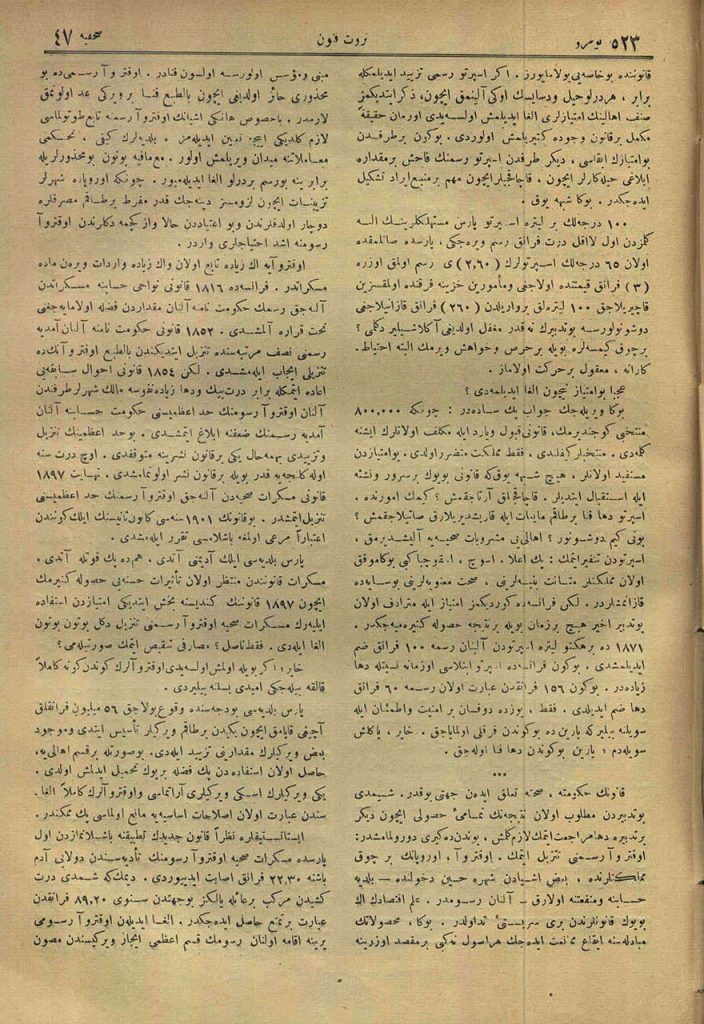 نومرو ۵۲۳
ثروت فنون
صحیفه ٤۷
قانوننده بوخاصه‌یی بولامایورز. اکر اسپرتو رسمی تزیید ایدیلمکله
برابر، هردرلوحیل ودسایسك اوکی آلینمق ایچون، ذکر ایتدیکمز
صنف اهالینك امتیازلری الغا ایدیلمش اولسه‌یدی اورمان حقیقةً
مکمل برقانون وجوده کتیریلمش اولوردی. بوکون برطرفدن
بوامتیازك ابقاسی، دیکر طرفدن اسپرتو رسمنك فاحش برمقداره
ابلاغی حیله‌کارلر ایچون، قاچاقجیلرایچون مهم برمنبع ایراد تشکیل
ایده‌جکدر. بوکا شبهه یوق.
۱۰۰ درجه‌لك بر لیتره اسپرتو پارس مستهلکلرینك الـه
کلمزدن اول لااقل درت فرانق رسم ویره‌جکی، پارسده صاتلمقده
اولان ٦۵ درجه‌لك اسپرتولرك (۲,٦۰) ی رسم اولمق اوزره
(۳) فرانق قیمتنده اولاجغی ومأمورین خزینه فرقنده اولمقسزین
قاچیریلاجق ۱۰۰ لیتره‌لق برواریلدن (۲٦۰) فرانق قازانیلاجغی
دوشونولورسه بوتدبیرك نه‌قدر مغفل اولدیغی آکلاشیلیر دکلمی؟
برچوق کیمسه‌لره بویله برحرص وخواهش ویرمك البته احتیاط‌ـ
کارانه، معقول برحرکت اولاماز.
عجبا بوامتیاز نیچون الغا ایدیلمه‌دی؟
بوکا ویریله‌جك جواب پك ساده‌در: چونکه ۸۰۰,۰۰۰
منتخبی کوجندیرمك، قانونی قبول ویارد ایله مکلف اولانلرك ایشنه
کلمه‌دی. منتخبلرکیفلندی، فقط مملکت متضرر اولدی. بوامتیازدن
مستفید اولانلر، هیچ شبهه یوق‌که قانونی بویوك برسرور ونشئه
ایله استقبال ایتدیلر. قاچاقجیلق آرتاجقمش؟ کیمك اموزنده.
اسپرتو دها فنا برطاقم مایعات ایله قاریشدیریلارق صاتیلاجقمش؟
بونی کیم دوشونور؟ اهالی‌یی مشروبات صحیه‌یه آلیشدیرمق،
اسپرتودن تنفیرایتمك: پك اعلا. اسوچ، بوکاموفق
اولان مملکتلر متـانت بنیـه‌لرینی، صحت معنویه‌لرینی بوسـایه‌ده
قازانمشلردر. لکن فرانسه‌ده کوردیکمز امتیاز ایله مترادف اولان
بوتدبیر اخیر هیچ برزمان بویله برنتیجه حصوله کتیره‌میه‌جکدر.
۱۸۷۱ ده برهکتو لیتره اسپرتودن آلینان رسمه ۱۰۰ فرانق ضم
ایدیلمشدی. بوکون فرانسه‌ده اسپرتو ابتلاسی اوزمانه نسبتله دها
زیاده‌در. بوکون ۱۵٦ فرانقدن عبارت اولان رسـمه ٦۰ فرانق
دها ضم ایدیلدی. فقط، یوزده دوقسان بر امنیت واطمئنان ایله
سویلنه بیلیرکه یارین ده بوکوندن فرقلی اولمایاجق. خایر، یاکلش
سویله‌دم؛ یارین بوکوندن دها فنا اوله‌جق.
***
قانونك حکومته، صحته تعلق ایدن جهتی بوقدر. شیمدی
بوتدبیردن مطلوب اولان نتیجه‌نك تمامی‌ٔ حصولی ایچون دیکر
برتدبیره دهامراجعت‌ایتمك لازم‌کلمش، بوندن‌ده‌کیری دورولمامشدر:
اوقتروآ رسـمنی تنزیل ایتمك. اوقتروآ، اوروپانك بر چوق
مملکتلرنده، بعض اشیادن شهره حین دخولنده — بلدیه
حسابنه ومنفعتنه اولارق — آلنان رسومدر. علم اقتصادك اك
بویوك قانونلرندن بری سربستی‌ٔ تداولدر. بوکا، محصولاتك
مبادله‌سنه ایقاع ممانعت ایده‌جك هراصول نه‌کبی برمقصد اوزرینه
مبنی ومؤسس اولورسه اولسون فنادر. اوقتروآ رسمی‌ده بو
محذوری حائز اولدیغی ایچون بالطبع فنـا برویرکی عد اولونمق
لازمدر. باخصوص هانکی اشیانك اوقتروآ رسمنه تابع‌طوتولماسی
لازم کلدیکی اییجه تعیین ایدیله‌مز. بلدیه‌لرك کیفی، تحکمی
معاملاتنه میدان ویریلمش اولور. مع‌مافیه بوتون بومحذورلریله
برابر ینه بورسم بردرلو الغا ایدیله‌میور. چونکه اوروپاده شهرلر
تزیینـات ایچون لزومسز دینه‌جك قدر مفرط برطاقم مصرفلره
دوچار اولدقلرندن وبو اعتیاددن حالا وازکچمه دکلرندن اوقتروآ
رسومنه اشد احتیاجلری واردر.
اوقتروآیه اك زیاده تابع اولان واك زیاده واردات ویرن ماده
مسکراتدر. فرانسه‌ده ۱۸۱٦ قانونی نواحی حسابنه مسکراتدن
آلنه‌جق رسمك حکومت نامنه آلنان مقداردن فضله اولامایه‌جغنی
تحت قراره آلمشدی. ۱۸۵۲ قانونی حکومت نامنه آلنان آمدیه
رسمنی نصف مرتبه‌سنده تنزیل ایتدیکندن بالطبع اوقتروآنك‌ده
تنزیلی ایجاب ایله‌مشدی. لکن ۱۸۵٤ قانونی احوال سابقه‌یی
اعاده ایتمکله برابر درت‌بیك ودها زیاده‌نفوسه مالك شهرلرطرفندن
آلنان اوقتروآ رسومنك حد اعظمیسنی حکومت حسـابنه آلنان
آمدیه رسـمنك ضعفنه ابلاغ ایتمشـدی. بوحد اعظمینك تنزیل
وتزییدی بهمه‌حال یکی برقانون نشرینه متوقفدی. اوچ درت سنه
اولـه کلنجه‌یه قدر بویله برقانون نشر اولونمامشدی، نهـایت ۱۸۹۷
قانونی مسکرات صحیه‌دن آلنه‌جق اوقتروآ رسمنك حد اعظمیسنی
تنزیل‌ایتمشدر. بوقانونك ۱۹۰۱ سنه‌سی کانون‌ثانیسنك ایلك‌کونندن
اعتباراً مرعی اولمغه باشلامسی تقرر ایله‌مشدی.
پارس بلدیه‌سی ایلك آدیمنی آتدی، هم‌ده پك قوتله آتدی.
مسکرات قانونندن منتظر اولان تأثیرات حسنه‌یی حصوله کتیرمك
ایچون ۱۸۹۷ قانوننك کندیسنه بخش ایتدیکی امتیازدن استفاده
ایلیه‌رك مسکرات صحیه اوقتروآ رسمنی تنزیل دکل بوتون بوتون
الغا ایله‌دی. فقط ناصل؟ مصارفی تنقیص ایتمك صورتیله‌می؟
خایر؛ اکر بویله اولمش اولسه‌یدی اوقتروآلرك کوندن‌کونه کاملاً
قالقه بیله‌جکی امیدی بسلنه بیلیردی.
پارس بلدیه‌سی بودجه‌سنده وقوع بولاجق ۵٦ میلیون فرانقلق
آچیغی قاپامق ایچون یکیدن برطاقم ویرکیلر تأسیس ایتدی وموجود
بعض ویرکیلرك مقدارینی تزیید ایله‌دی. بوصورتله برقسم اهالی‌یه،
حاصل اولان استفاده‌دن پك فضله بریوك تحمیل ایدلمش اولدی.
یکی ویرکیلرك اسـکی ویرکیلری آراتماسی واوقتروآلرك کاملاً الغا‌ـ
سندن عبارت اولان اصلاحات اساسیه‌یه مانع اولماسی پك ممکندر.
ایستاتستیقلره نظراً قانون جدیدك تطبیقنه باشلانمازدن اول
پارسده مسکرات صحیه اوقتروآ رسومنك تأدیه‌سـندن دولایی آدم
باشنه ۲۲,۳۰ فرانق اصابت ایدییوردی. دیمك‌که شمدی درت
کشیدن مرکب برعائله یالکز بوجهتدن سنوی ۸۹,۲۰ فرانقدن
عبارت برتمتع حاصل ایده‌جکدر. الغـا ایدیلن اوقتروآ رسـومی
یرینه اقامه اولنان رسومك قسم اعظمی ایجار ویرکیسندن مصون